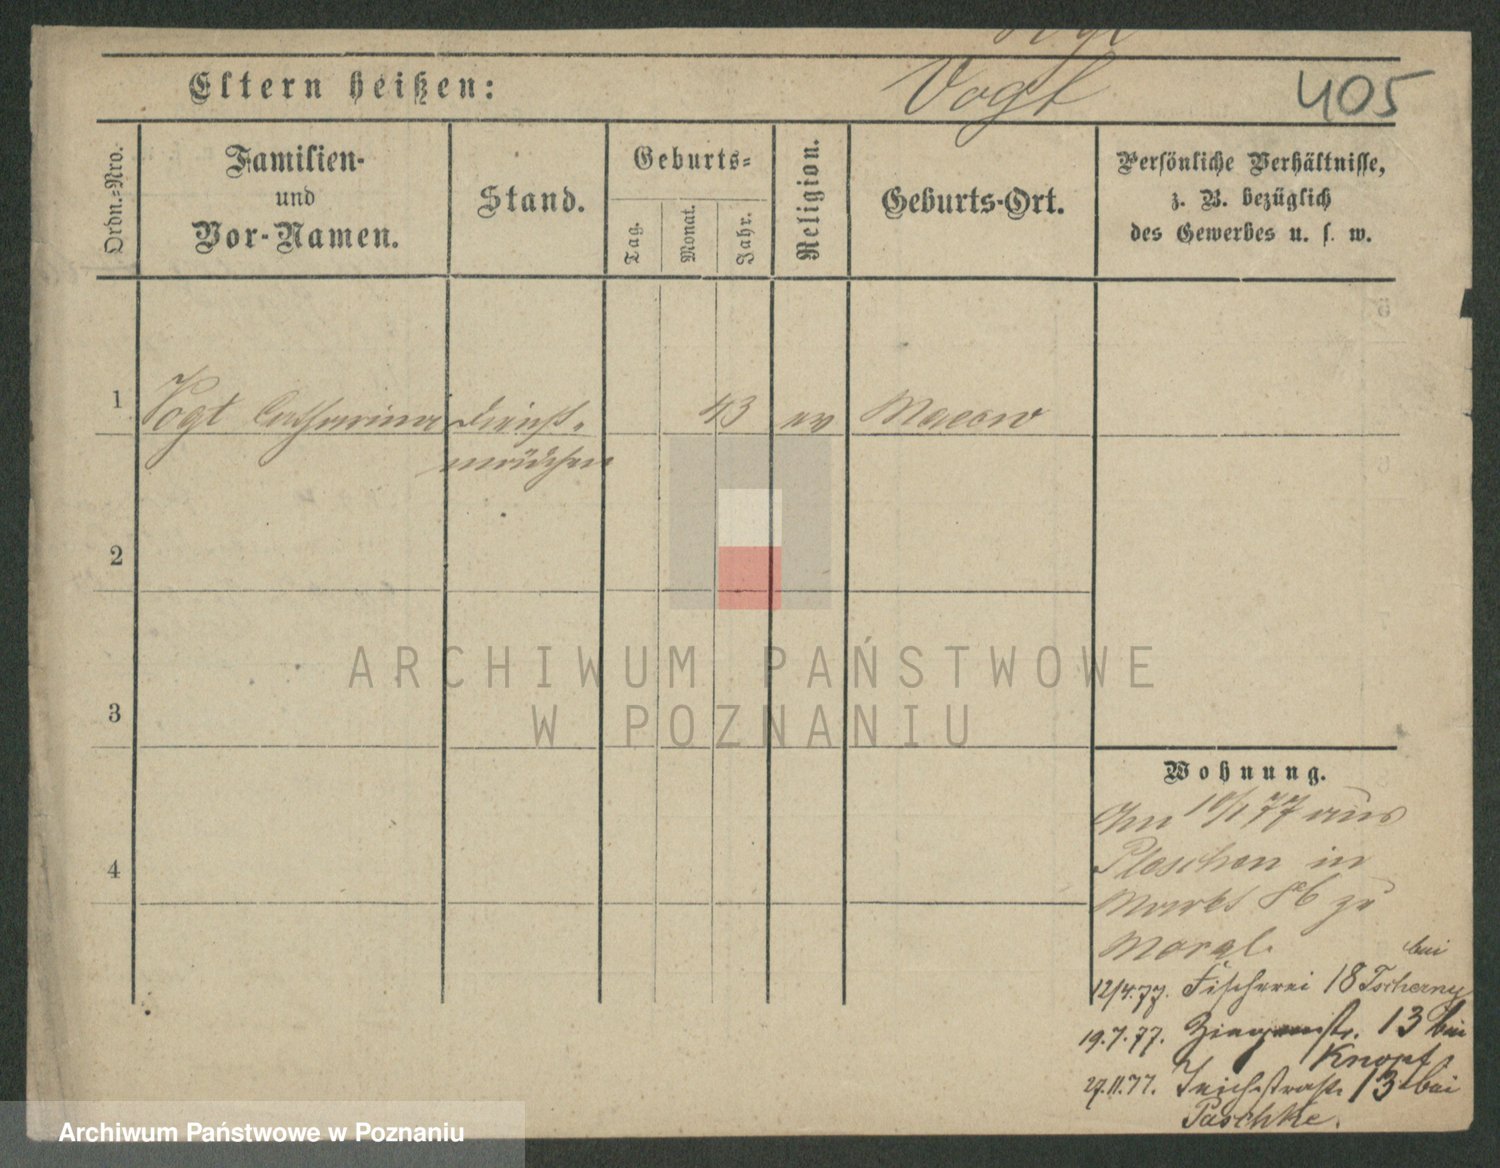 Vogt
405
Eltern heißen:
Ordn.-Nro.
Familien-
und
Vor-Namen.
Stand.
Geburts-
Tag.
Monat.
Jahr.
Religion.
Geburts-Ort.
Persönliche Verhältnisse,
z. B. bezüglich
des Gewerbes u. s. w.
1 Vogt Catharina Dienst- 43 ev
mädchen
2
3
4
ARCHIWUM PAŃSTWOWE
W POZNANIU
Wohnung.
Am 10/1 77 aus
Pleschen in
Markt 86 zu
bei
12/4.77. Fischerei 18 Tscherny
19.7.77. 13 bei
Knopf
27.11.77. Teichstraße 13 bei
Paschke.
Archiwum Państwowe w Poznaniu